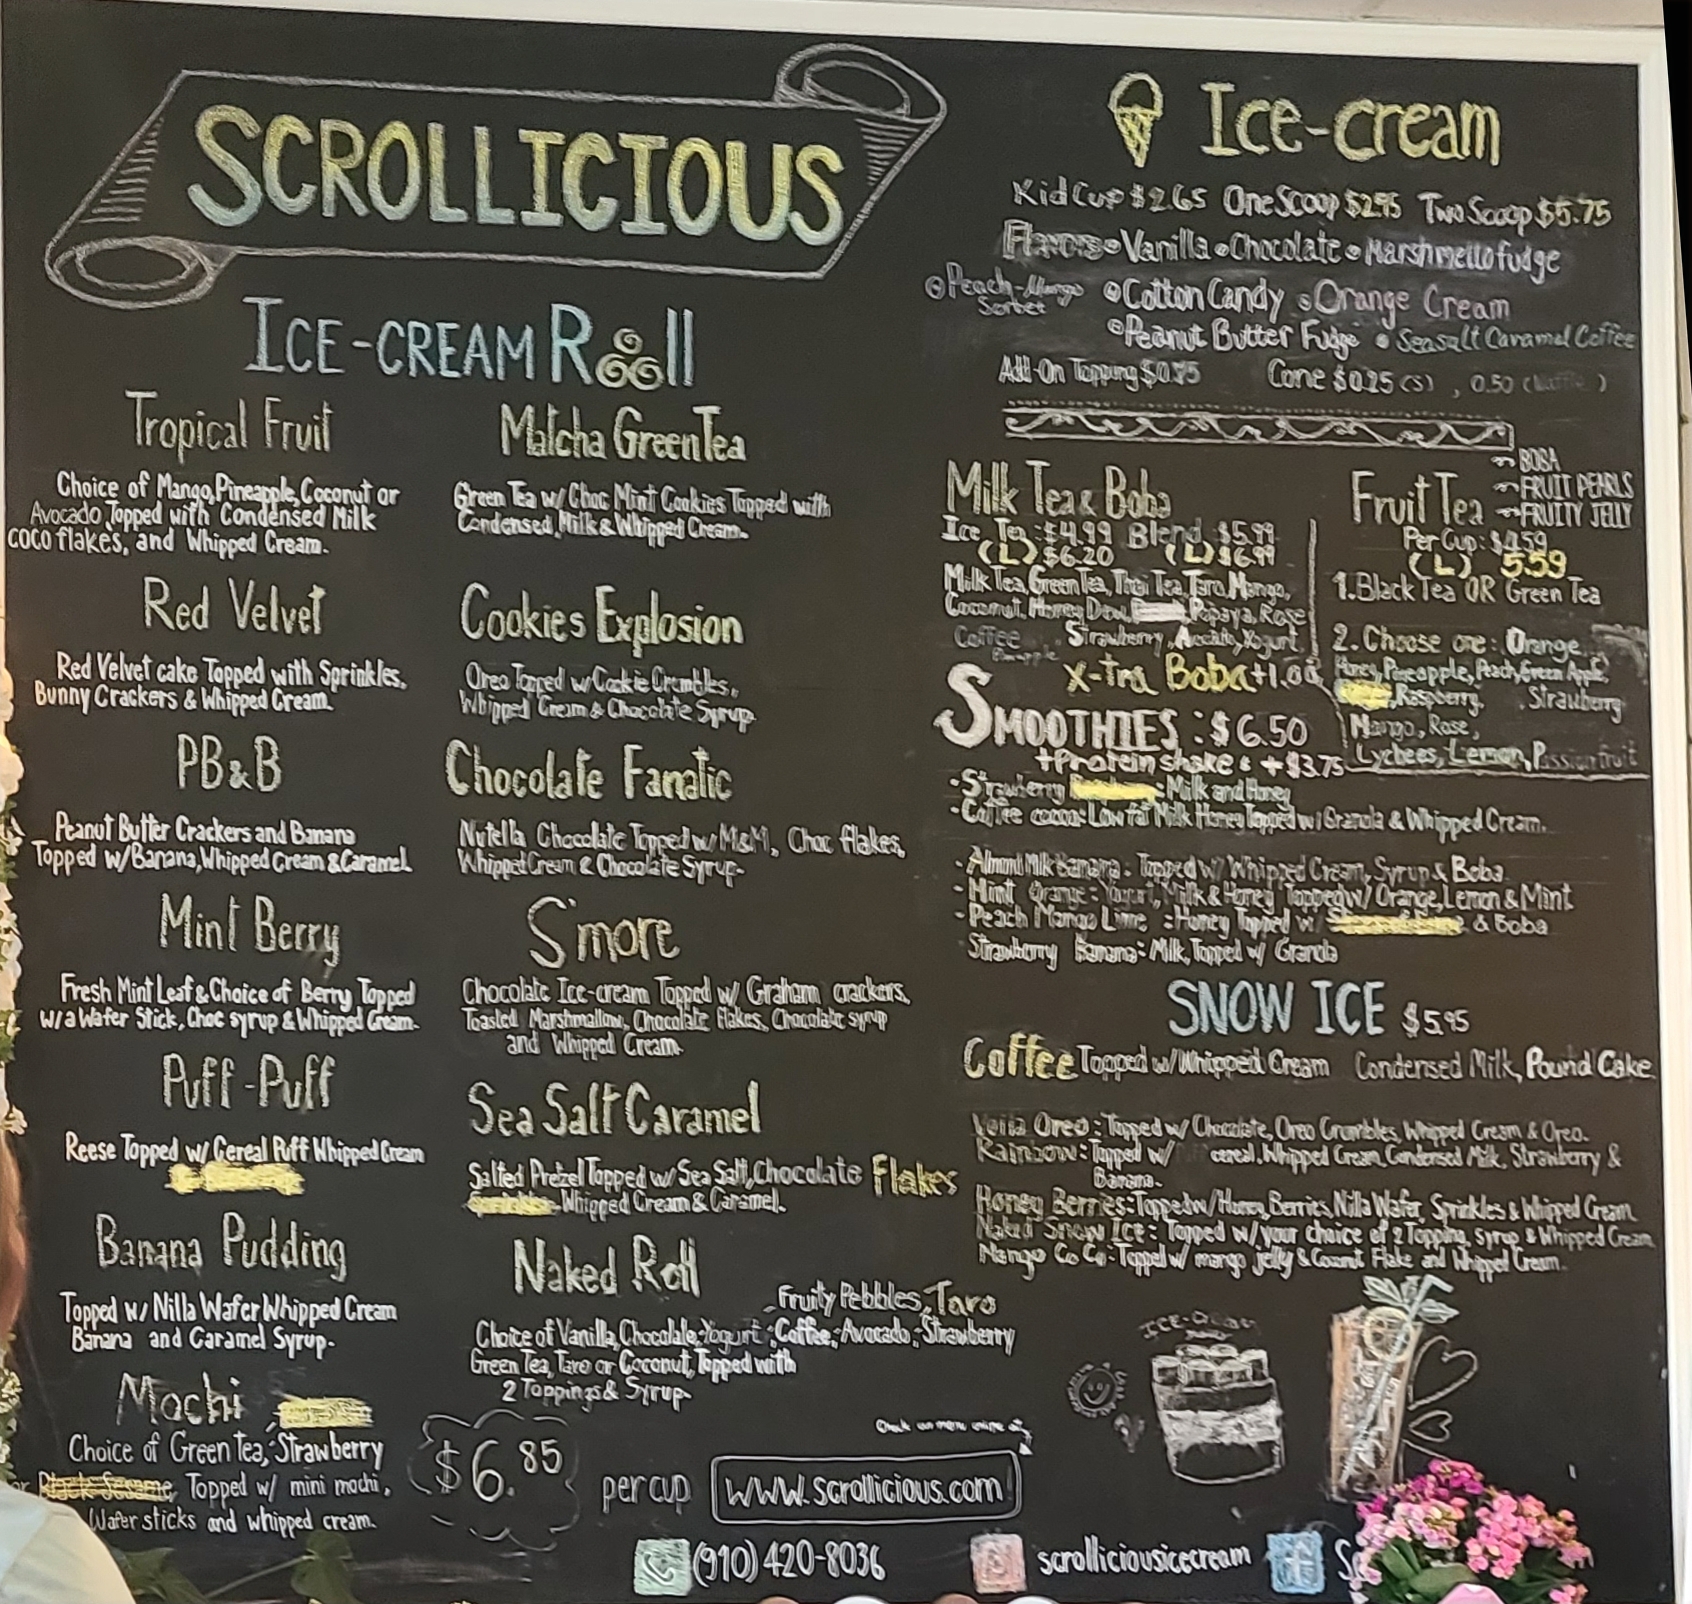 SCROLLICIOUS
ICE-CREAM Roll
Tropical Fruit
Choice of Mango, Pineapple, Coconut or
Avocado Topped with Condensed Milk
coco flakes, and Whipped Cream.
Red Velvet
Red Velvet cake Topped with Sprinkles,
Bunny Crackers & Whipped Cream.
PB&B
Peanut Butter Crackers and Banana
Topped w/Banana, Whipped Cream & Caramel.
Mint Berry
Fresh Mint Leaf & Choice of Berry Topped
w/a Wafer Stick, Choc syrup & Whipped Cream.
Puff-Puff
Reese Topped w/ Cereal Puff Whipped Cream
Banana Pudding
Topped w/ Nilla Wafer Whipped Cream
Banana and Caramel Syrup.
Mochi
Choice of Green Tea, Strawberry
or Black Sesame, Topped w/ mini mochi,
Wafer sticks and whipped cream.
Matcha Green Tea
Green Tea w/ Choc Mint Cookies Topped with
Condensed Milk & Whipped Cream.
Cookies Explosion
Oreo Topped w/ Cookie Crumbles,
Whipped Cream & Chocolate Syrup.
Chocolate Fanatic
Nutella Chocolate Topped w/ M&M, Choc flakes,
Whipped Cream & Chocolate Syrup.
S'more
Chocolate Ice-cream Topped w/ Graham crackers,
Toasted Marshmallow, Chocolate Flakes, Chocolate syrup
and Whipped Cream.
Sea Salt Caramel
Salted Pretzel Topped w/ Sea Salt, Chocolate Flakes
Sprinkles Whipped Cream & Caramel.
Naked Roll
Fruity Pebbles, Taro
Choice of Vanilla, Chocolate, Yogurt, Coffee, Avocado, Strawberry
Green Tea, Taro or Coconut, Topped with
2 Toppings & Syrup.
$6.85 per cup
Check on menu online at
www.scrollicious.com
(910) 420-8036
scrolliciousicecream
Ice-cream
Kid Cup $2.65 One Scoop $2.95 Two Scoop $5.75
Flavors • Vanilla • Chocolate • Marshmello fudge
• Peach-Mango Sorbet • Cotton Candy • Orange Cream
• Peanut Butter Fudge • Seasalt Caramel Coffee
Add-On Topping $0.75 Cone $0.25 (s), 0.50 (Waffle)
Milk Tea & Boba
Ice Tea: $4.99 Blend $5.99
(L) $6.20 (L) $6.99
Milk Tea, Green Tea, Thai Tea, Taro, Mango,
Coconut, Honey Dew, Papaya, Rose
Coffee, Strawberry, Yogurt
Pineapple
x-tra Boba +1.00
Fruit Tea
BOBA
FRUIT PEARLS
FRUITY JELLY
Per Cup: $4.59
(L) 5.59
1. Black Tea OR Green Tea
2. Choose one: Orange
Honey, Pineapple, Peach, Green Apple,
Raspberry, Strawberry
Mango, Rose,
Lychees, Lemon, Passionfruit
SMOOTHIES: $6.50
+Protein shake: +$3.75
- Strawberry : Milk and Honey
- Coffee cocoa: Low fat Milk Honey Topped w/ Granola & Whipped Cream.
- Almond Milk Banana: Topped w/ Whipped Cream, Syrup & Boba.
- Mint Orange: Yogurt, Milk & Honey Topped w/ Orange, Lemon & Mint
- Peach Mango Lime: Honey Topped w/ & Boba
Strawberry Banana: Milk, Topped w/ Granola
SNOW ICE $5.95
Coffee Topped w/ Whipped Cream Condensed Milk, Pound Cake
Voila Oreo: Topped w/ Chocolate, Oreo Crumbles, Whipped Cream & Oreo.
Rainbow: Topped w/ cereal, Whipped Cream, Condensed Milk, Strawberry &
Banana.
Honey Berries: Topped w/ Honey, Berries, Nilla Wafer, Sprinkles & Whipped Cream
Naked Snow Ice: Topped w/ your choice of 2 Topping, syrup & Whipped Cream
Mango Co Co: Topped w/ mango jelly & Coconut Flake and Whipped Cream.